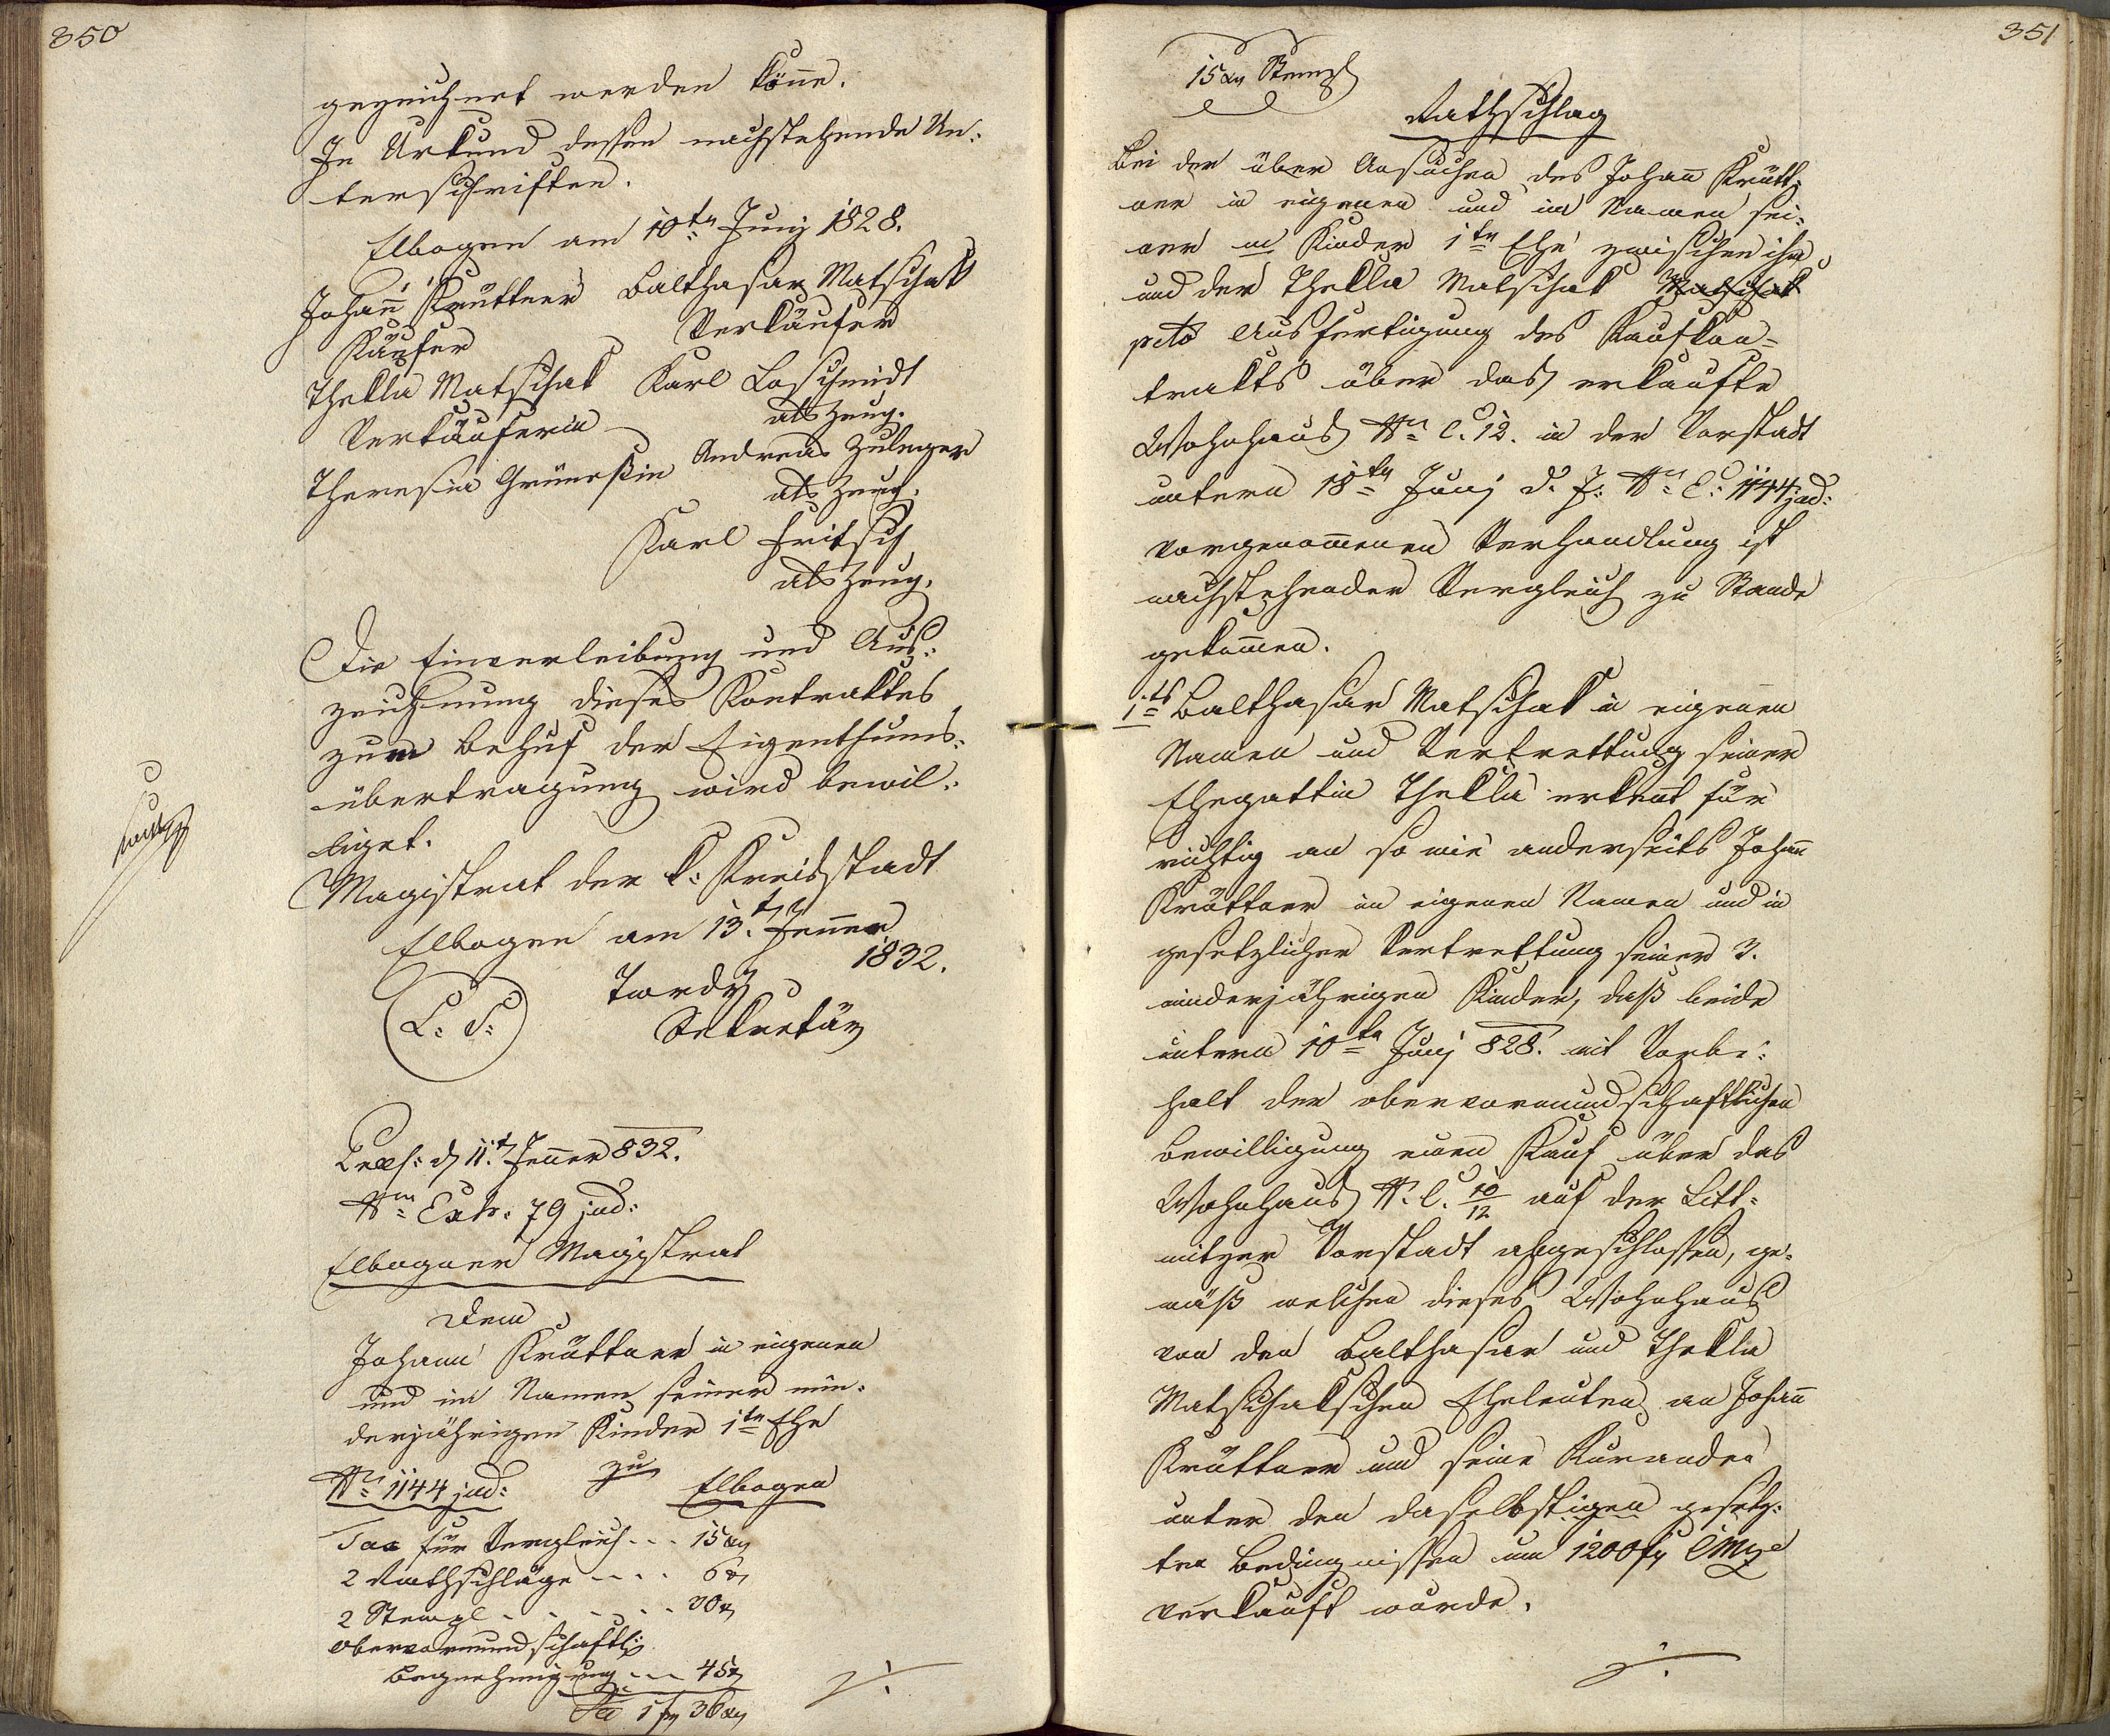 350
gezeichnet werden könne.
In Urkund dessen nachstehende Un:
terschriften.
Elbogen am 10tn Juny 1828.
Johann Krüttner Balthasar Matschak
Käufer Verkäufer
Thekla Matschak Karl Loschmidt
Verkäuferin als Zeug.
Theresia Grünessin Andreas Zuleger
als Zeug.
Karl Fritsch
als Zeug.
Die Einverleibung und Aus:
zeichnung dieses Kontraktes
zum Behuf der Eigenthums:
übertragung wird bewil:
liget.
Magistrat der k: Kreisstadt
Elbogen am 13.t Jenner
1832.
Twrdy
L: S:
Sekretär
Praes: d 11.t Jenner 832.
Nrn Exh. 79 jud:
Elbogner Magistrat
Dem
Johann Krüttner in eigenen
und im Namen seiner min:
derjährigen Kinder 1tr Ehe
zu
Nr: 1144 jud: Elbogen
Tax für Vergleich... 15 xr
2 Rathschläge .... 6 xr
2 Stempl . . . . . 30 xr
obervormundschaftl:
Begnehmigung... 45 xr
Sa 1 fr 36 xr
./.
351
15 xr Stempl
Rathschlag
Bei der über Ansuchen des Johann Krütt:
ner in eigenen und im Namen sei:
ner m Kinder 1tr Ehe zwischen ihm
und der Thekla Matschak Matschak
pcto Ausfertigung des Kaufkon=
trakts über das erkaufte
Wohnhaus Nr C. 12. in der Vorstadt
untern 18tn Juny d. J: Nr E: 1144 jud:
vorgenommenen Verhandlung ist
nachstehender Vergleich zu Stande
gekommen.
1.ts Balthasar Matschak in eigenen
Namen und Vertrettung seiner
Ehegattin Thekla erkennt für
richtig an so wie anderseits Johann
Krüttner im eigenen Namen und in
gesetzlicher Vertrettung seiner 3.
minderjährigen Kinder, daß beide
untern 10tn Juny 828. mit Vorbe:
halt der obervormundschaftlichen
Bewilligung einen Kauf über das
Wohnhaus N. C. 10/12 auf der Litt:
mitzer Vorstadt abgeschlossen, ge:
mäß welchen dieses Wohnhaus
von den Balthasar und Thekla
Matschakschen Eheleuten an Johann
Krüttner und seine Kuranden
unter den daselbstigen gesetz:
ten Bedingnissen um 1200 fr CMze
verkauft wurde.
./.